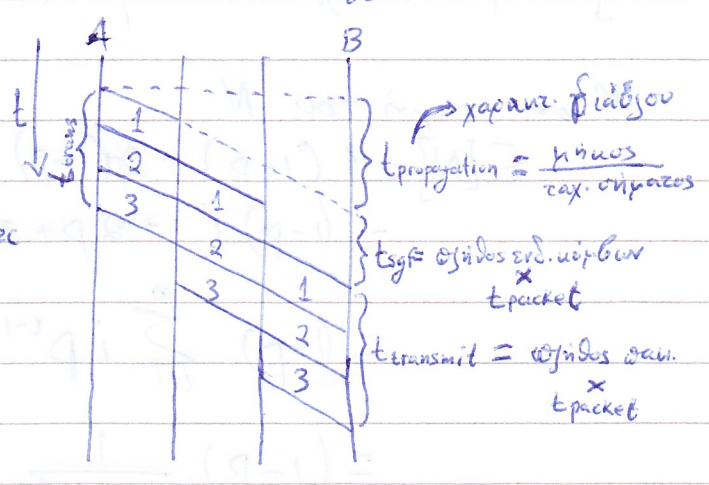 A B
t
t trans
1
2
3
1
2
3
1
2
3
ec
χαρακτ. διαύλου
t propagation = μήκος / ταχ. σήματος
t sgf = πλήθος ενδ. κόμβων
×
t packet
t transmit = πλήθος πακ.
×
t packet